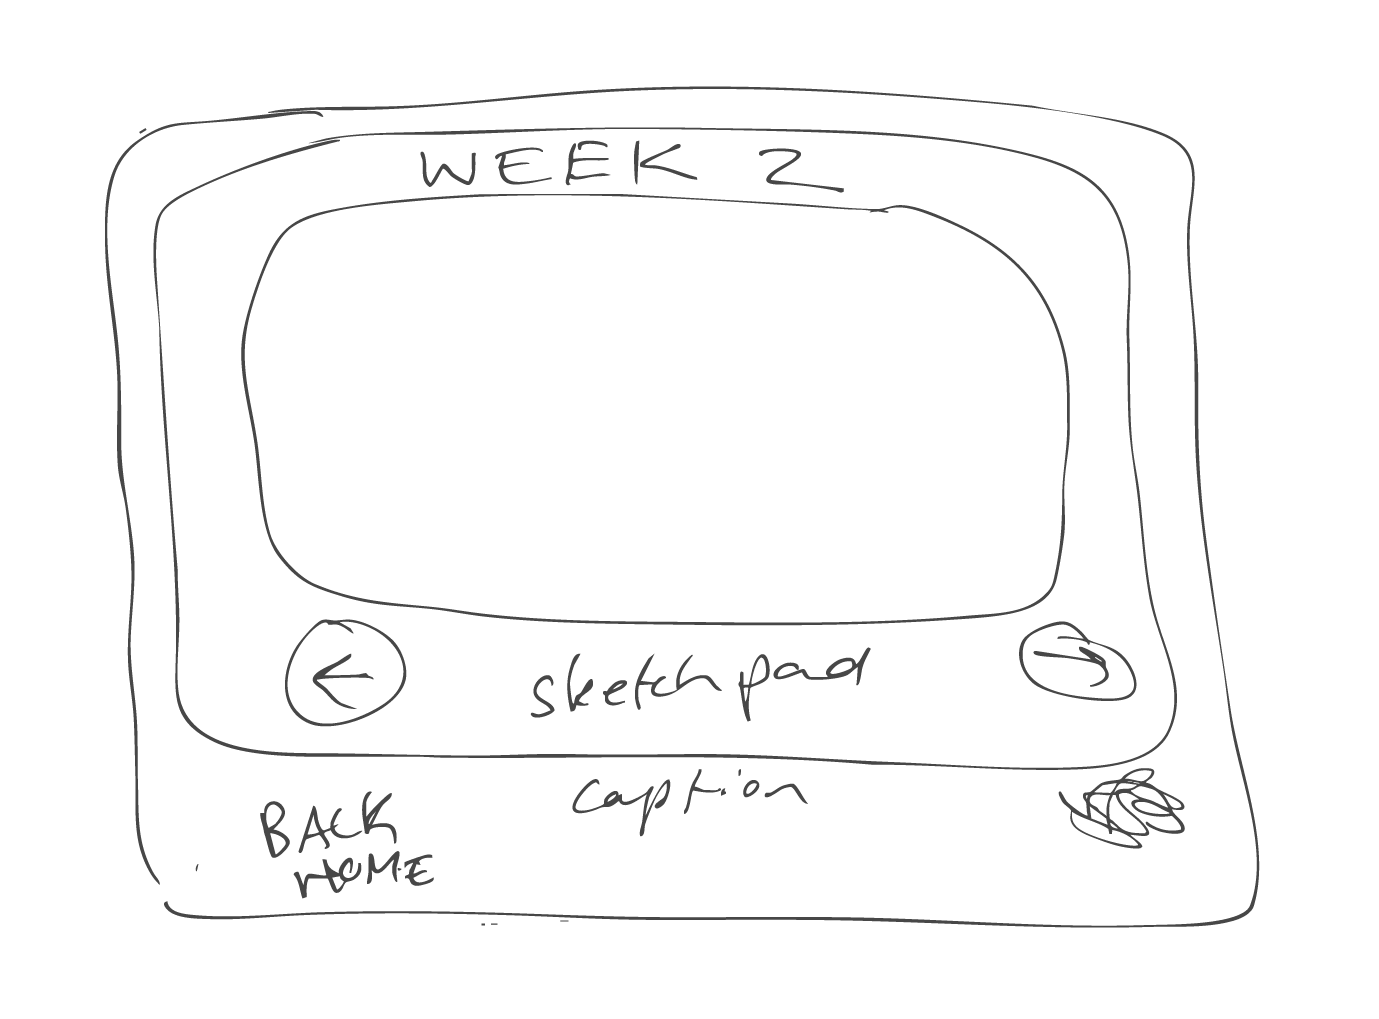 WEEK 2
sketchpad
caption
BACK
HOME